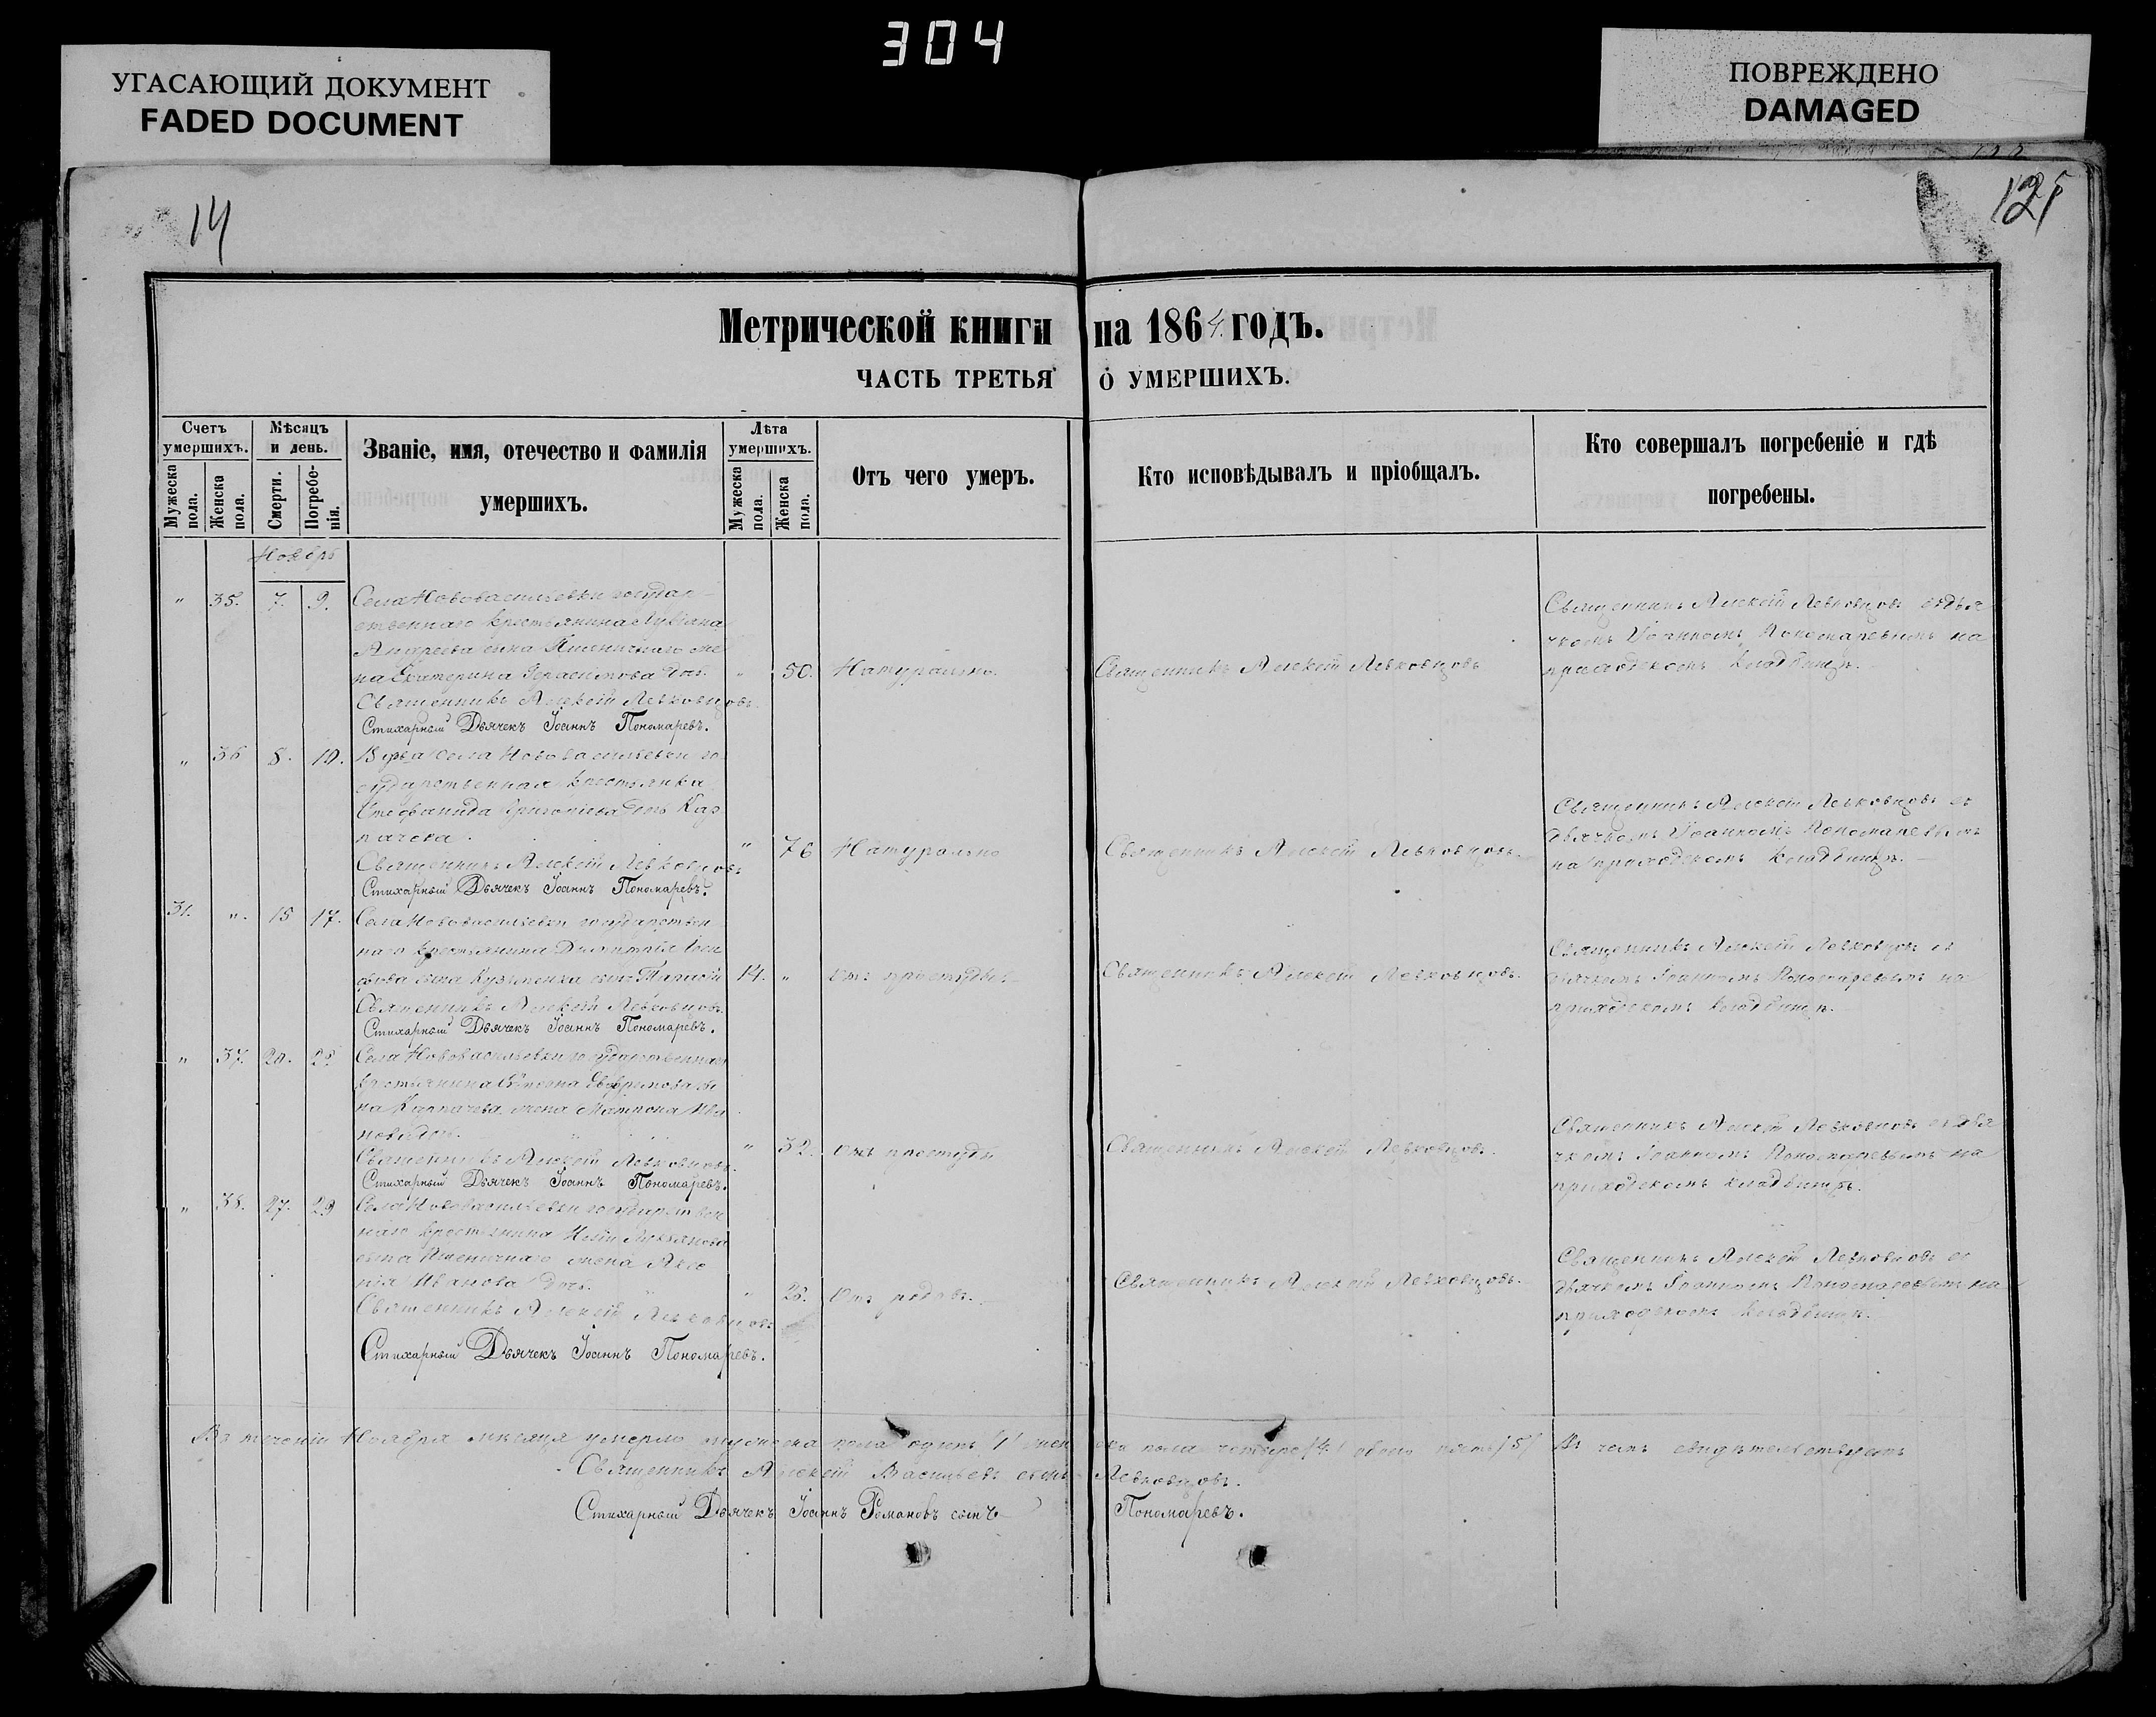 304
УГАСАЮЩИЙ ДОКУМЕНТ
FADED DOCUMENT
ПОВРЕЖДЕНО
DAMAGED
14
Метрической книги на 1864 годъ.
ЧАСТЬ ТРЕТЬЯ О УМЕРШИХЪ.
Счетъ умершихъ.
Мужеска пола.
Женска пола.
Мѣсяцъ и день.
Смерти.
Погребенія.
Званіе, имя, отечество и фамилія умершихъ.
Лѣта умершихъ.
Мужеска пола.
Женска пола.
Отъ чего умеръ.
Кто исповѣдывалъ и пріобщалъ.
Кто совершалъ погребеніе и гдѣ погребены.
Ноябрь
" 35. 7. 9. Села Нововасильевки государ-
ственнаго крестьянина Лукіана
Андреева сына Пшеничнаго же
на Екатерина Герасимова дочь. " 50. Натурально. Священникъ Алексій Левковцовъ
Священникъ Алексій Левковцовъ.
Стихарный Дьячекъ Іоаннъ Пономаревъ.
Священникъ Алексій Левковцовъ съ дья
чкомъ Іоанномъ Пономаревымъ на
приходскомъ кладбищѣ.
" 36 8. 10. Вдова села Нововасильевки го
сударственная крестьянка
Стефанида дочь Кар
пачева. " 76 Натурально Священникъ Алексій Левковцовъ.
Священникъ Алексій Левковцовъ.
Стихарный Дьячекъ Іоаннъ Пономаревъ.
Священникъ Алексій Левковцовъ съ
дьячкомъ Іоанномъ Пономаревымъ
на приходскомъ кладбищѣ.
31. ". 15 17. Села Нововасильевки государствен
наго крестьянина Димитрія
сына Кузьменка сынъ Тарасій 14. " Отъ простуды. Священникъ Алексій Левковцовъ.
Священникъ Алексій Левковцовъ.
Стихарный Дьячекъ Іоаннъ Пономаревъ.
Священникъ Алексій Левковцовъ съ
дьячкомъ Іоанномъ Пономаревымъ на
приходскомъ кладбищѣ.
" 37. 20. Села Нововасильевки государственнаго
крестьянина Евфремова сы
на Карпачева жена Матрона Ива
нова дочь. " 32. Отъ простуды Священникъ Алексій Левковцовъ.
Священникъ Алексій Левковцовъ.
Стихарный Дьячекъ Іоаннъ Пономаревъ.
Священникъ Алексій Левковцовъ съ дья
чкомъ Іоанномъ Пономаревымъ на
приходскомъ кладбищѣ.
" 38. 27. 29 Села Нововасильевки государствен
наго крестьянина Лукьянова
сына Пшеничнаго жена
Иванова дочь. " 28. Отъ родовъ. Священникъ Алексій Левковцовъ.
Священникъ Алексій Левковцовъ
Стихарный Дьячекъ Іоаннъ Пономаревъ.
Священникъ Алексій Левковцовъ съ
дьячкомъ Іоанномъ Пономаревымъ на
приходскомъ кладбищѣ.
Въ теченіи Ноября мѣсяца умерло мужеска пола одинъ /1/ женска пола четыре /4/ обоего пять /5/ Въ чемъ свидѣтельствуемъ
Священникъ Алексій Васильевъ сынъ Левковцовъ.
Стихарный Дьячекъ Іоаннъ Романовъ сынъ Пономаревъ.